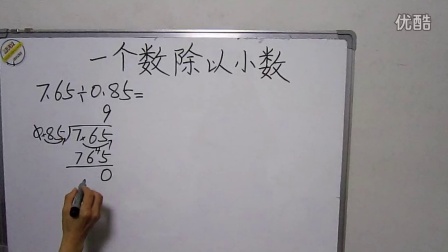 优酷
一个数除以小数
7.65÷0.85=
9
0.85 7.65
765
0